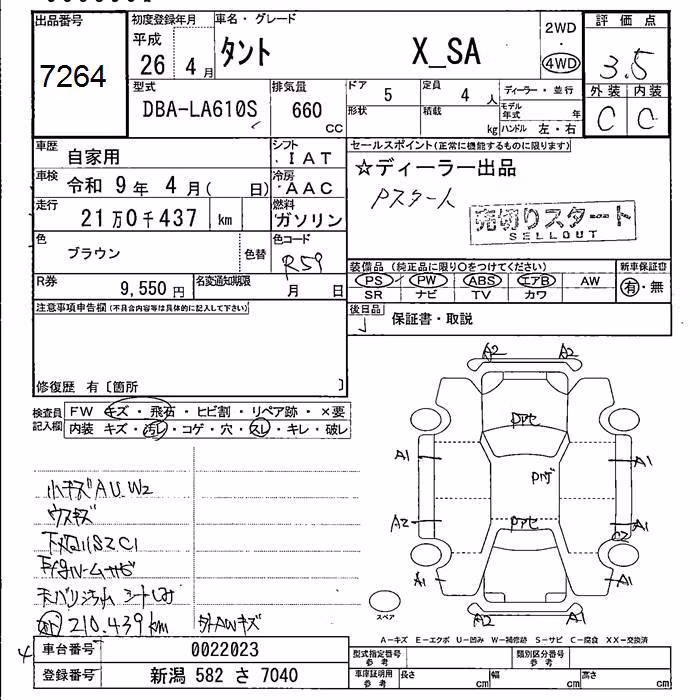 出品番号
7264
初度登録年月
平成
26 4月
車名・グレード
タント X_SA
2WD
・
4WD
評価点
3.5
外装 内装
C C
型式
DBA-LA610S
排気量
660
cc
ドア
5
定員
4 人
形状
積載
kg
ディーラー・並行
モデル
年式 年
ハンドル 左・右
車歴
自家用
シフト
.IAT
車検
令和 9年 4月( 日)
冷房
.AAC
走行
21万0千437 km
燃料
ガソリン
色
ブラウン
色替
色コード
R59
R券
9,550円
名変通知期限
月 日
セールスポイント(正常に機能するものに限ります)
☆ディーラー出品
Pスタート
売切りスタート
SELLOUT
装備品 (純正品に限り○をつけてください)
PS PW ABS エアB AW
SR ナビ TV カワ
新車保証書
有・無
後日品
保証書・取説
注意事項申告欄(不具合内容等は具体的に記入して下さい)
修復歴 有〔箇所 〕
検査員
記入欄
FW キズ・飛石・ヒビ割・リペア跡・×要
内装 キズ・汚れ・コゲ・穴・スレ・キレ・破レ
小キズAU.W2
ウスキズ
下廻りS2C1
210.439km
外AWキズ
A2 A2
Pアセ
A1 A1
A2 Pアセ A1
C2
A1 A1
A2 A2
スペア
A-キズ E-エクボ U-凹み W-補修跡 S-サビ C-腐食 XX-交換済
車台番号
0022023
登録番号
新潟 582 さ 7040
型式指定番号
参考
類別区分番号
参考
車庫証明用
参考
長さ cm
幅 cm
高さ cm